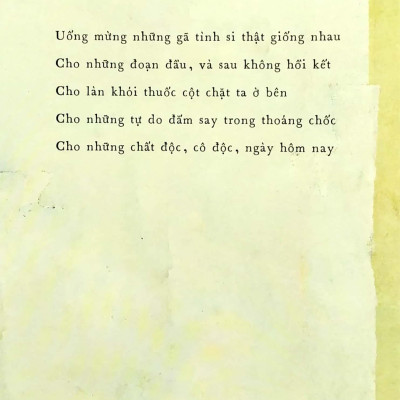 Uống mừng những gã tình si thật giống nhau
Cho những đoạn đầu, và sau không hồi kết
Cho làn khói thuốc cột chặt ta ở bên
Cho những tự do đắm say trong thoáng chốc
Cho những chất độc, cô độc, ngày hôm nay